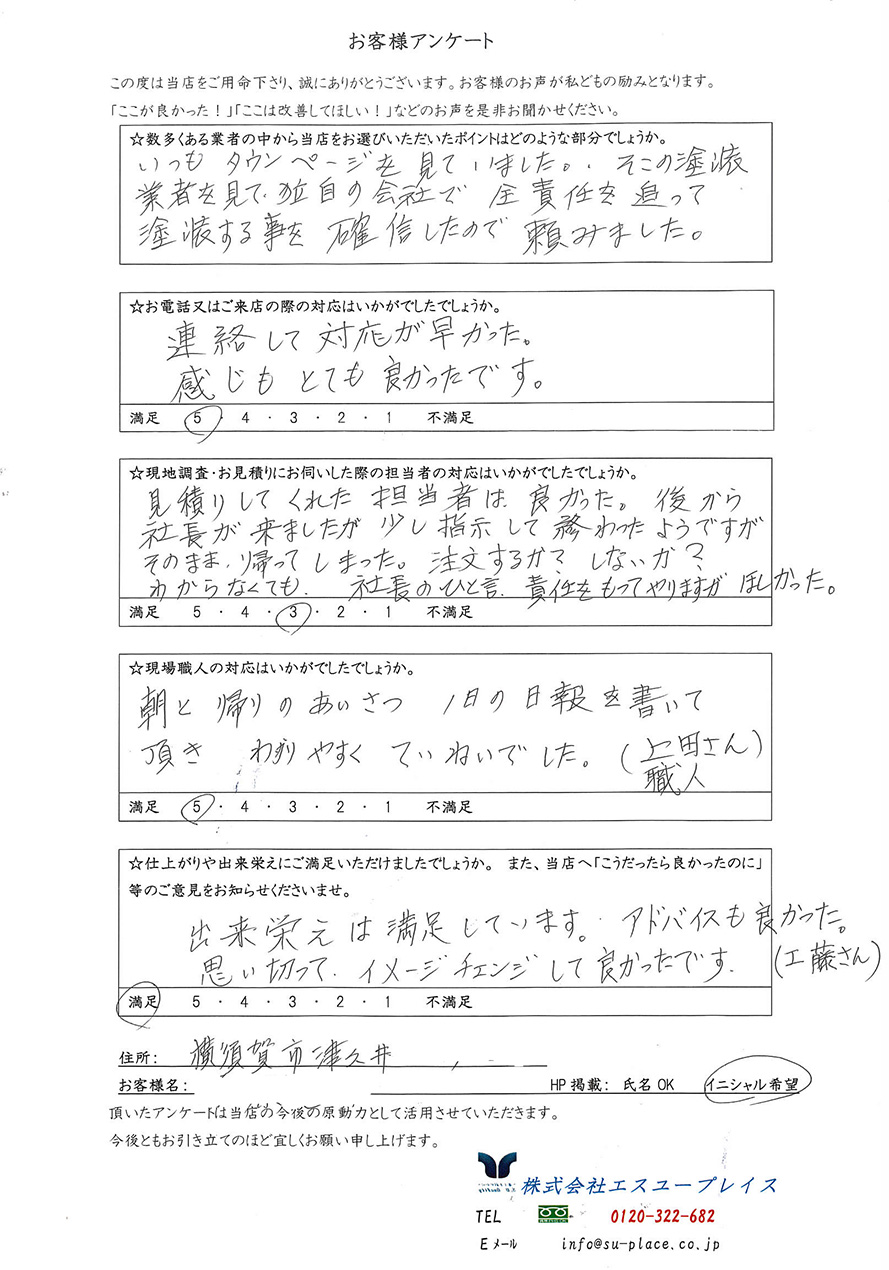 お客様アンケート
この度は当店をご用命下さり、誠にありがとうございます。お客様のお声が私どもの励みとなります。
「ここが良かった！」「ここは改善してほしい！」などのお声を是非お聞かせください。
☆数多くある業者の中から当店をお選びいただいたポイントはどのような部分でしょうか。
いつも タウンページを 見て いました。. そこの塗装
業者を見て、独自の会社で 全責任を 追って
塗装する事を 確信したので 頼みました。
☆お電話又はご来店の際の対応はいかがでしたでしょうか。
連絡して 対応が早かった。
感じも とても 良かったです。
満足 5 ・ 4 ・ 3 ・ 2 ・ 1 不満足
☆現地調査・お見積りにお伺いした際の担当者の対応はいかがでしたでしょうか。
見積りして くれた 担当者は 良かった。 後から
社長が 来ましたが 少し指示して 終わったようですが
そのまま、帰って しまった。 注文するか？ しないか？
わからなくても、 社長のひと言、責任をもってやりますが ほしかった。
満足 5 ・ 4 ・ 3 ・ 2 ・ 1 不満足
☆現場職人の対応はいかがでしたでしょうか。
朝と 帰りの あいさつ 1日の 日報を書いて
頂き わかりやすく ていねいでした。 (上田さん)
職人
満足 5 ・ 4 ・ 3 ・ 2 ・ 1 不満足
☆仕上がりや出来栄えにご満足いただけましたでしょうか。 また、当店へ「こうだったら良かったのに」
等のご意見をお知らせくださいませ。
出来栄えは満足しています。 アドバイスも良かった。
思い切って、イメージチェンジして良かったです. (工藤さん)
満足 5 ・ 4 ・ 3 ・ 2 ・ 1 不満足
住所: 横須賀市津久井
お客様名: HP 掲載: 氏名 OK イニシャル希望
頂いたアンケートは当店の今後の原動力として活用させていただきます。
今後ともお引き立てのほど宜しくお願い申し上げます。
株式会社エスユープレイス
TEL 0120-322-682
Eメール info@su-place.co.jp